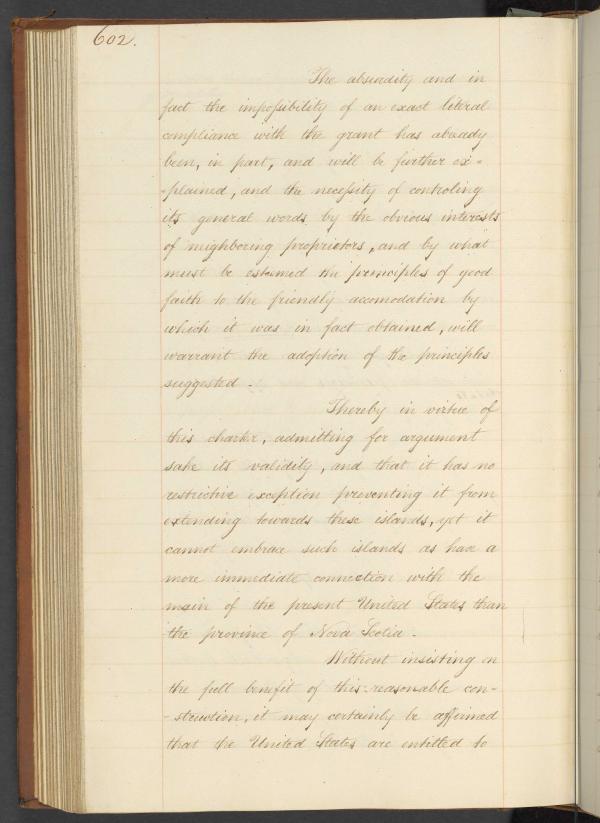 602.
The absurdity and in
fact the impossibility of an exact literal
compliance with the grant has already
been, in part, and will be further ex=
=plained, and the necessity of controling
its general words by the obvious interests
of neighboring proprietors, and by what
must be estemed the principles of good
faith to the friendly accomodation by
which it was in fact obtained, will
warrant the adoption of the principles
suggested.
Thereby in virtue of
this charter, admitting for argument
sake its validity, and that it has no
restrictive exception preventing it from
extending towards these islands, yet it
cannot embrace such islands as have a
more immediate connection with the
main of the present United States than
the province of Nova Scotia.
Without insisting on
the full benefit of this reasonable con-
-struction, it may certainly be affirmed
that the United States are entitled to